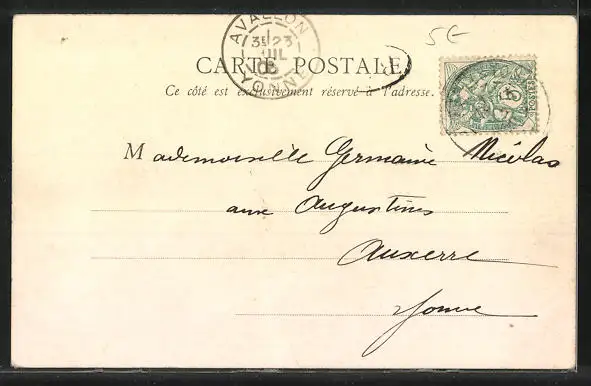 5€
AVALLON
3E 23
JUIL
03
YONNE
CARTE POSTALE
Ce côté est exclusivement réservé à l'adresse.
5
Mademoiselle Germaine Nicolas
aux Augustins
Auxerre
Yonne